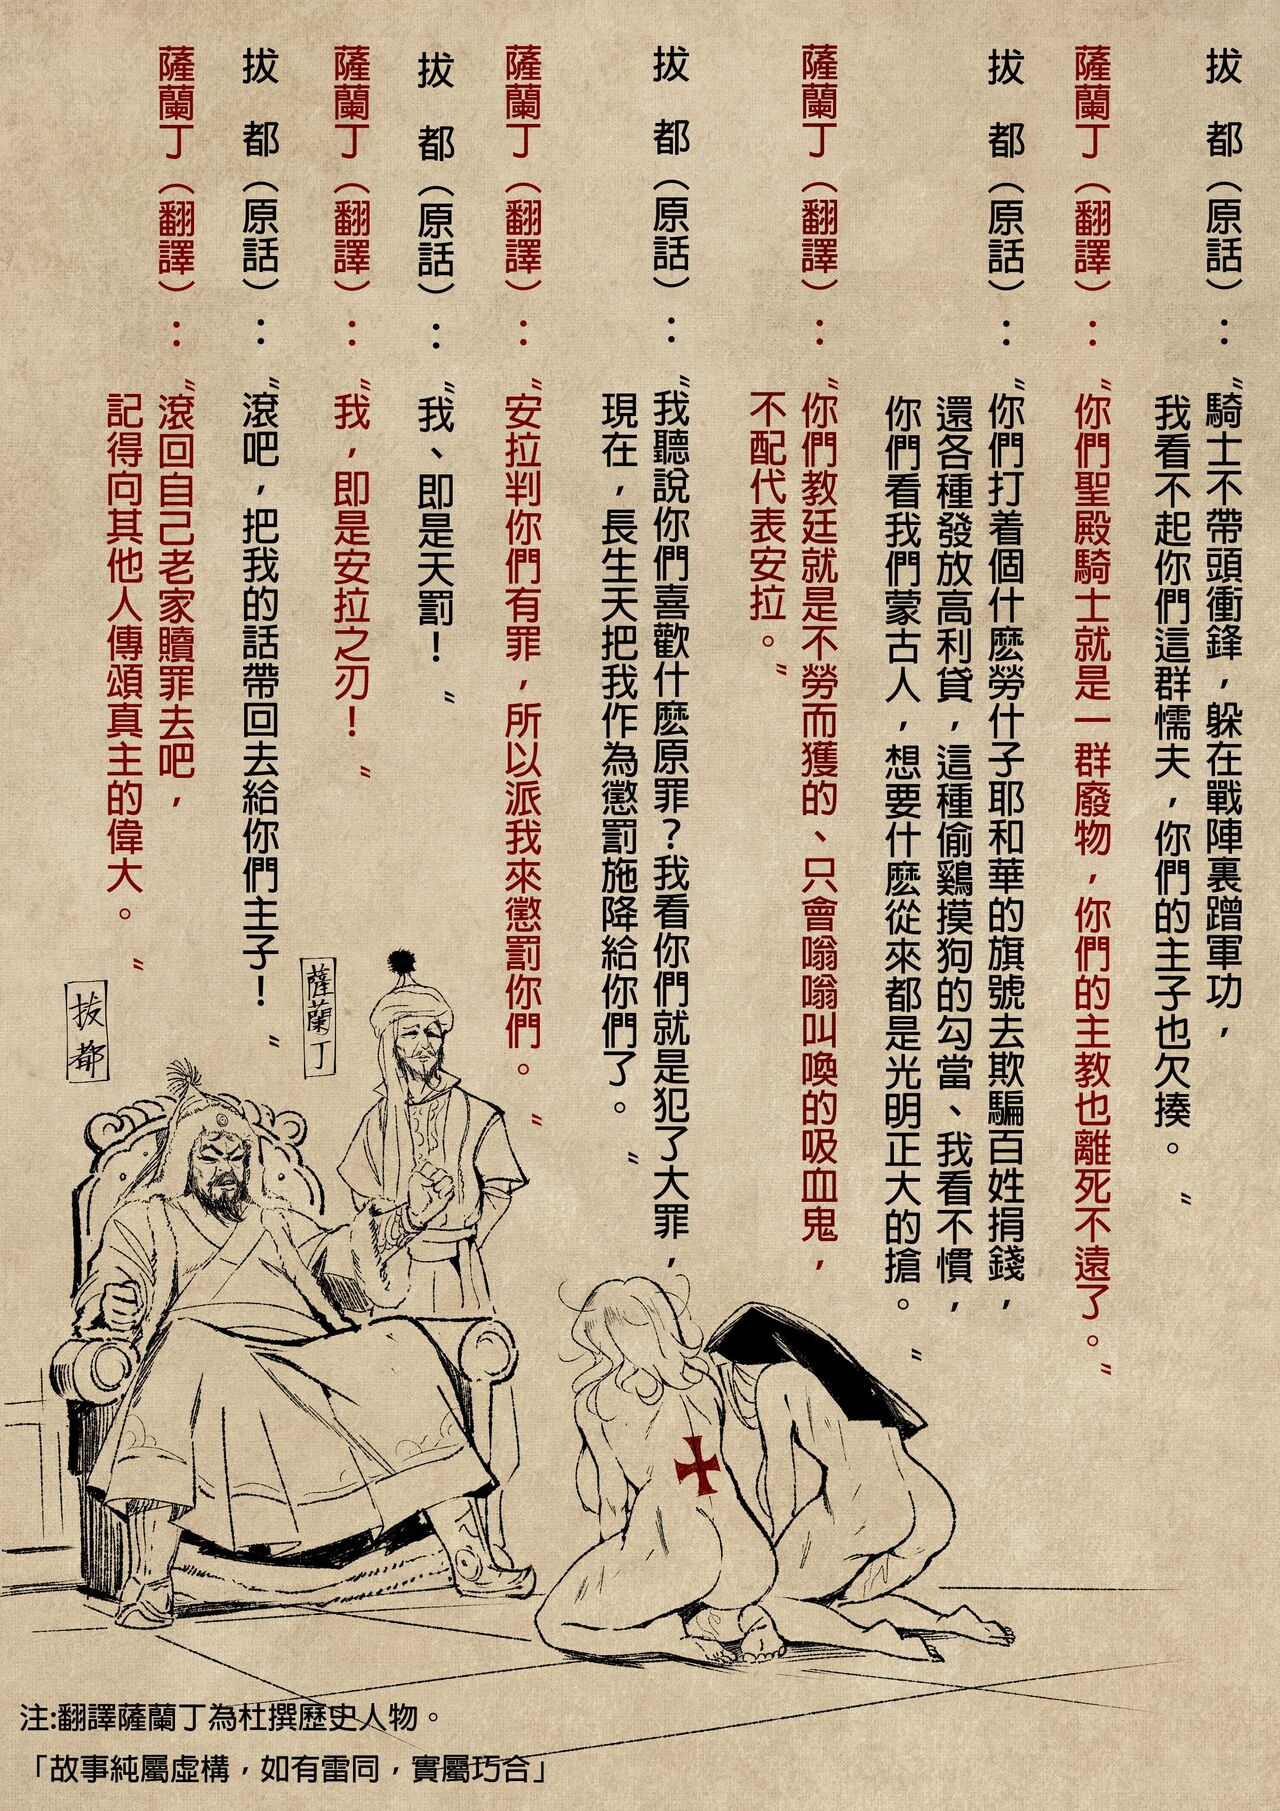 拔　都（原話）：〝騎士不帶頭衝鋒，躲在戰陣裏蹭軍功，
我看不起你們這群懦夫，你們的主子也欠揍。〞
薩蘭丁（翻譯）：〝你們聖殿騎士就是一群廢物，你們的主教也離死不遠了。〞
拔　都（原話）：〝你們打着個什麽勞什子耶和華的旗號去欺騙百姓捐錢，
還各種發放高利貸，這種偷鷄摸狗的勾當、我看不慣，
你們看我們蒙古人，想要什麽從來都是光明正大的搶。〞
薩蘭丁（翻譯）：〝你們教廷就是不勞而獲的、只會嗡嗡叫喚的吸血鬼，
不配代表安拉。〞
拔　都（原話）：〝我聽說你們喜歡什麽原罪？我看你們就是犯了大罪，
現在，長生天把我作為懲罰施降給你們了。〞
薩蘭丁（翻譯）：〝安拉判你們有罪，所以派我來懲罰你們。〞
拔　都（原話）：〝我、即是天罰！〞
薩蘭丁（翻譯）：〝我，即是安拉之刃！〞
拔　都（原話）：〝滾吧，把我的話帶回去給你們主子！〞
薩蘭丁（翻譯）：〝滾回自己老家贖罪去吧，
記得向其他人傳頌真主的偉大。〞
薩蘭丁
拔都
注:翻譯薩蘭丁為杜撰歷史人物。
「故事純屬虛構，如有雷同，實屬巧合」